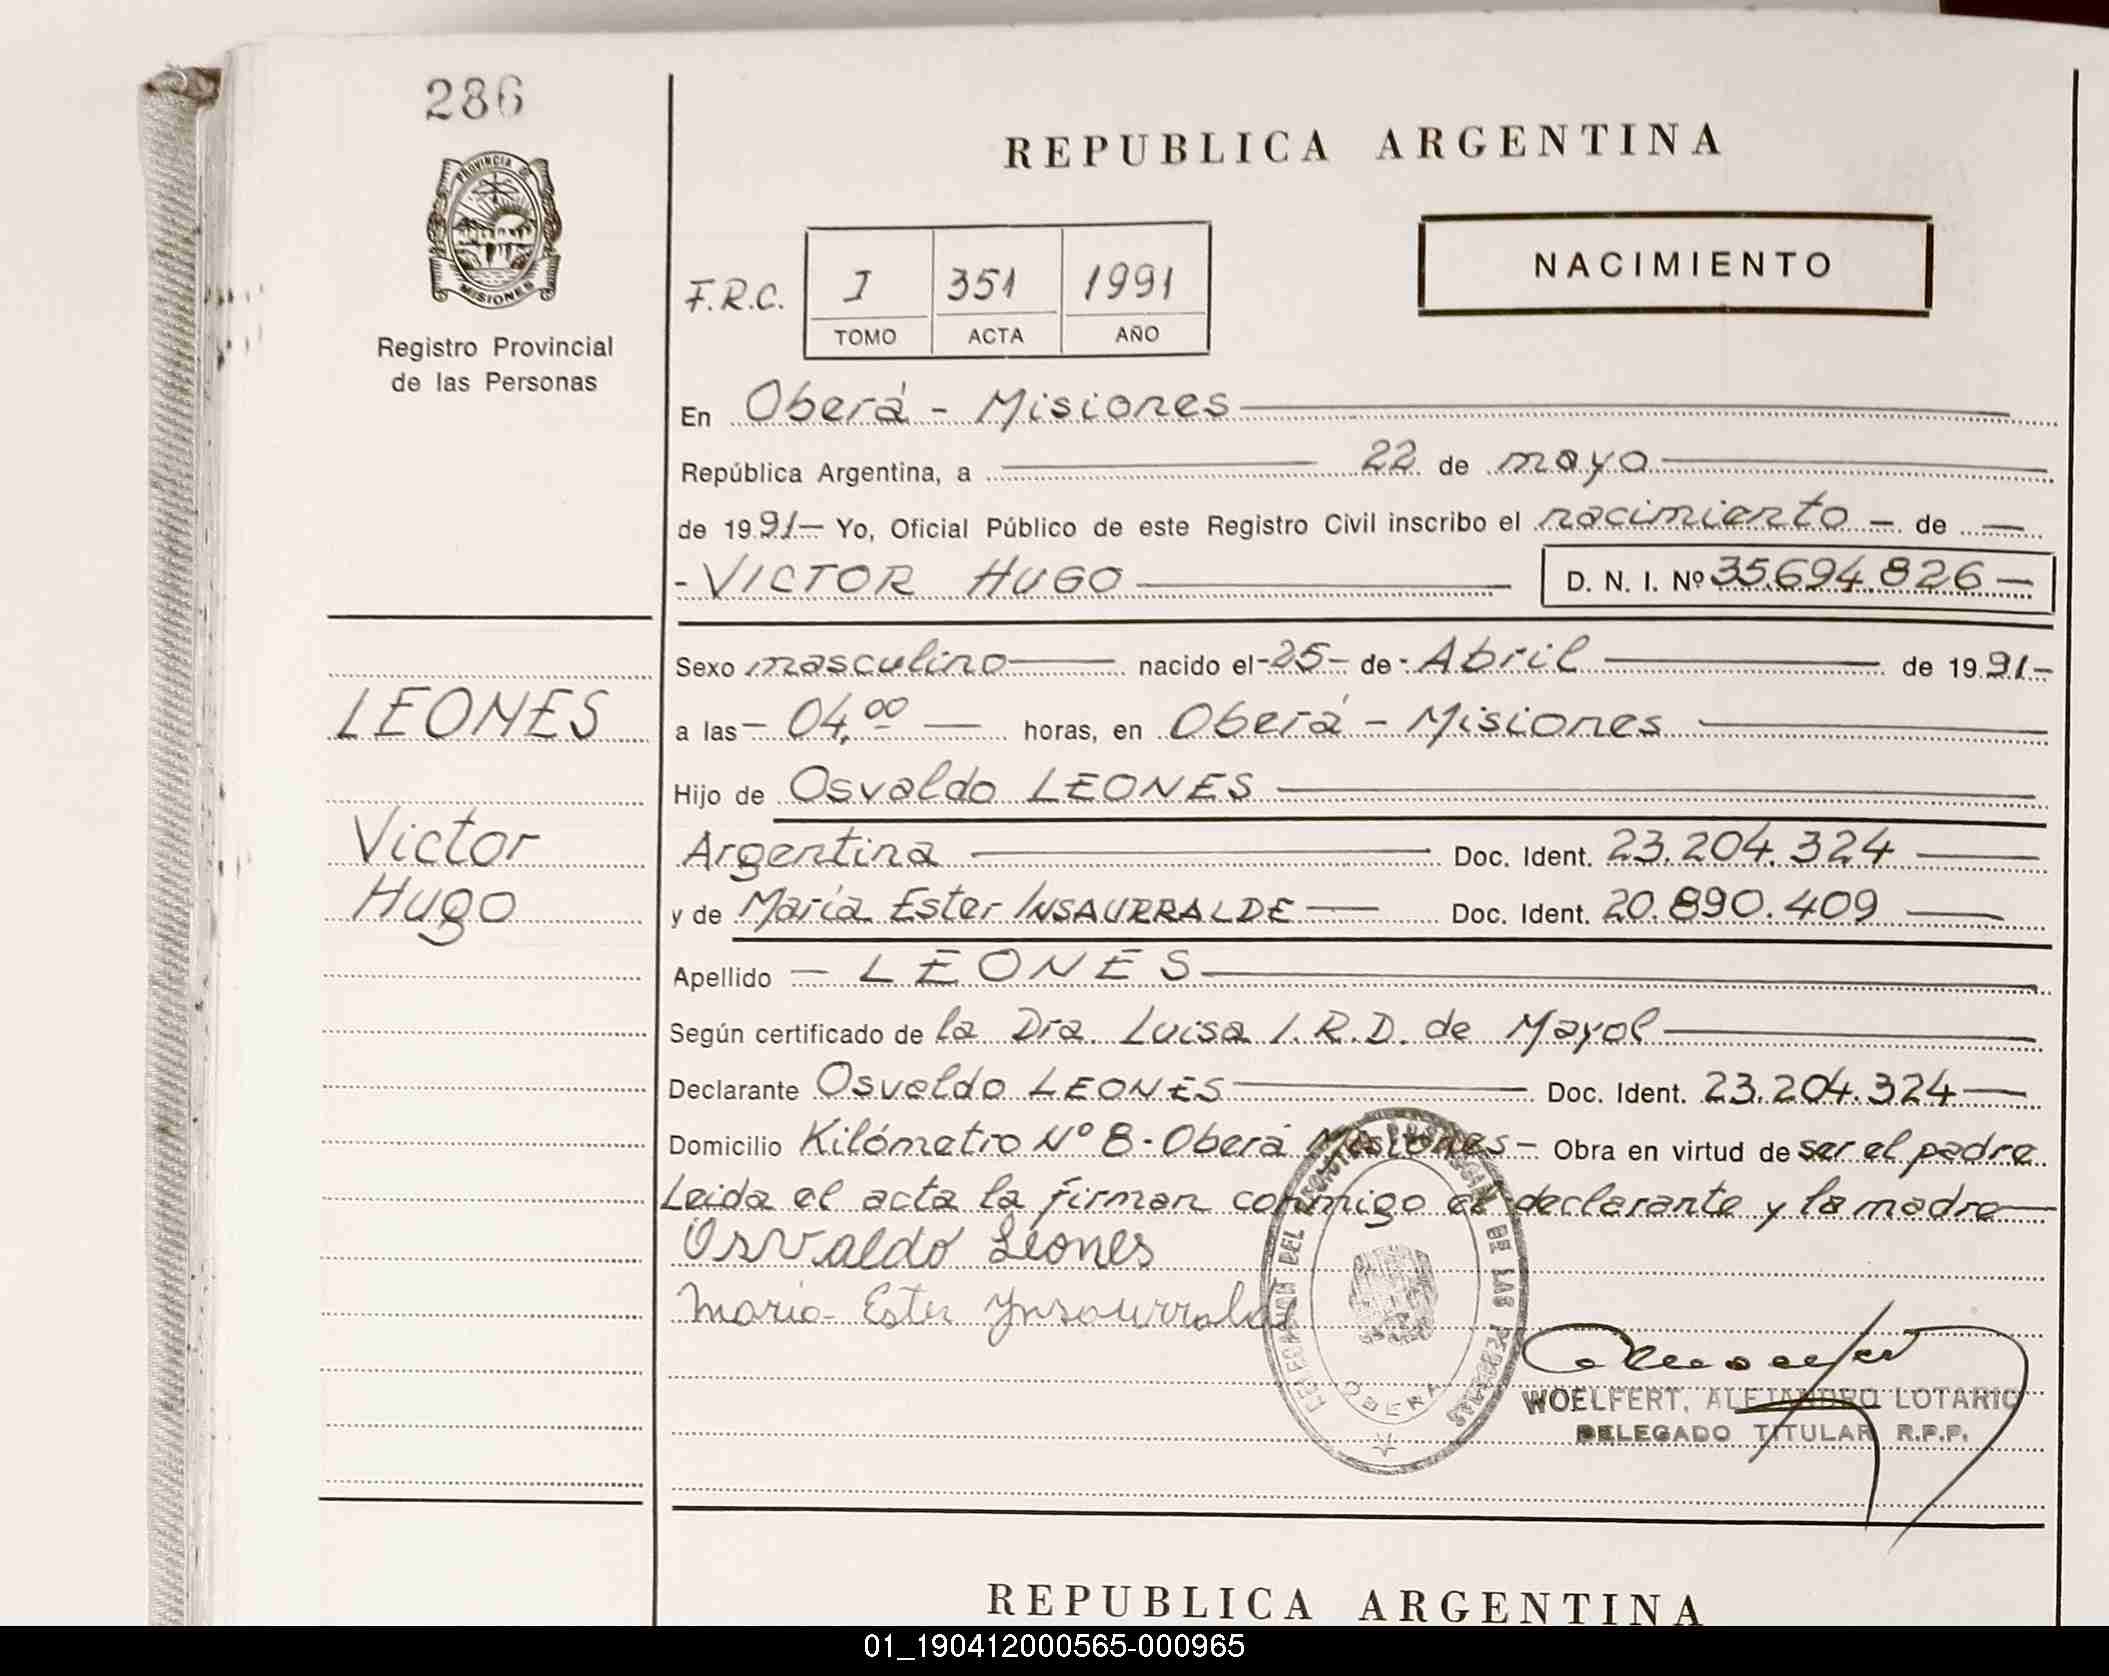 286
PROVINCIA DE
MISIONES
Registro Provincial
de las Personas
REPUBLICA ARGENTINA
NACIMIENTO
F.R.C.
I 351 1991
TOMO ACTA AÑO
En Oberá - Misiones
República Argentina, a 22 de mayo
de 1991- Yo, Oficial Público de este Registro Civil inscribo el nacimiento - de -
- VICTOR HUGO D. N. I. Nº 35.694.826 -
LEONES
Victor
Hugo
Sexo masculino nacido el - 25 - de - Abril de 1991 -
a las - 04,00 - horas, en Oberá - Misiones
Hijo de Osvaldo LEONES
Argentina Doc. Ident. 23.204.324
y de María Ester INSAURRALDE Doc. Ident. 20.890.409
Apellido - LEONES
Según certificado de la Dra. Luisa I.R.D. de Mayol
Declarante Osvaldo LEONES Doc. Ident. 23.204.324
Domicilio Kilómetro Nº 8 - Oberá Misiones - Obra en virtud de ser el padre
Leida el acta la firman conmigo el declarante y la madre
Osvaldo Leones
Maria Ester Ynsaurralde
DELEGACION DEL REGISTRO DE LAS PERSONAS
OBERA
WOELFERT, ALEJANDRO LOTARIO
DELEGADO TITULAR R.P.P.
REPUBLICA ARGENTINA
01_190412000565-000965